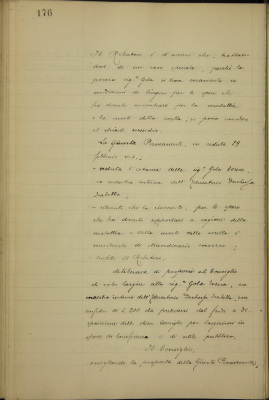 176
Il Relatore è d'avviso che, trattan-
dosi di un caso speciale, perchè la
povera sig.ª Gola si trova veramente in
condizioni di bisogno per le spese che
ha dovuto incontrare per la malattia
e la morte della sorella, si possa accordare
il chiesto sussidio.
La Giunta Permanente, in seduta 29
febbraio
veduta l'istanza della sig.ª Gola
maestra interna dell'Educatorio Duchessa
Isabella,
ritenuto che la ricorrente, per le spese
che ha dovuto sopportare a cagione della
malattia e della morte della sorella è
meritevole di
udito il Relatore,
deliberava di proporsi al Consiglio
di voler largire alla sig.ª Gola
maestra interna dell'Educatorio Duchessa Isabella un
sussidio di L. 200 da prelevarsi dal fondo a di-
sposizione dello stesso Consiglio per
spese di beneficenza e di utilità pubblica.
Il Consiglio,
accogliendo la proposta della Giunta Permanente